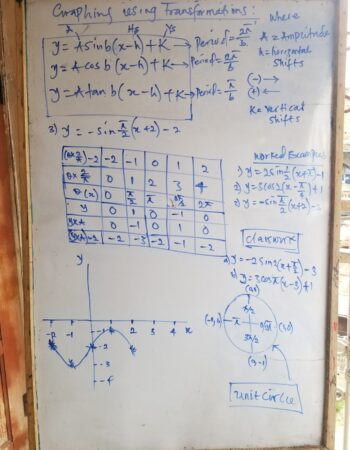 Graphing using Transformations:
y = A sin b(x-h) + K → Period = 2π/b
y = A cos b(x-h) + K → Period = 2π/b
y = A tan b(x-h) + K → Period = π/b
where
A = Amplitude
h = horizontal
shifts
(-) →
(+) ←
K = vertical
shifts
3) y = -sin π/2 (x+2) - 2
-2 -2 -1 0 1 2
0 1 2 3 4
θ(x) 0 π/2 π 3π/2 2π
y 0 1 0 -1 0
y×A 0 -1 0 1 0
y×A-2 -2 -3 -2 -1 -2
Worked Examples
2) y = 3cos2(x - π/2) + 1
3) y = -sin π/2 (x+2) - 2
classwork
a) y = -2sin2(x+π/2) - 3
b) y = 3cosπ(x-3) + 1
y
-2 -1 1 2 3 4 x
-2
-3
-4
π/2
π
3π/2
unit circle